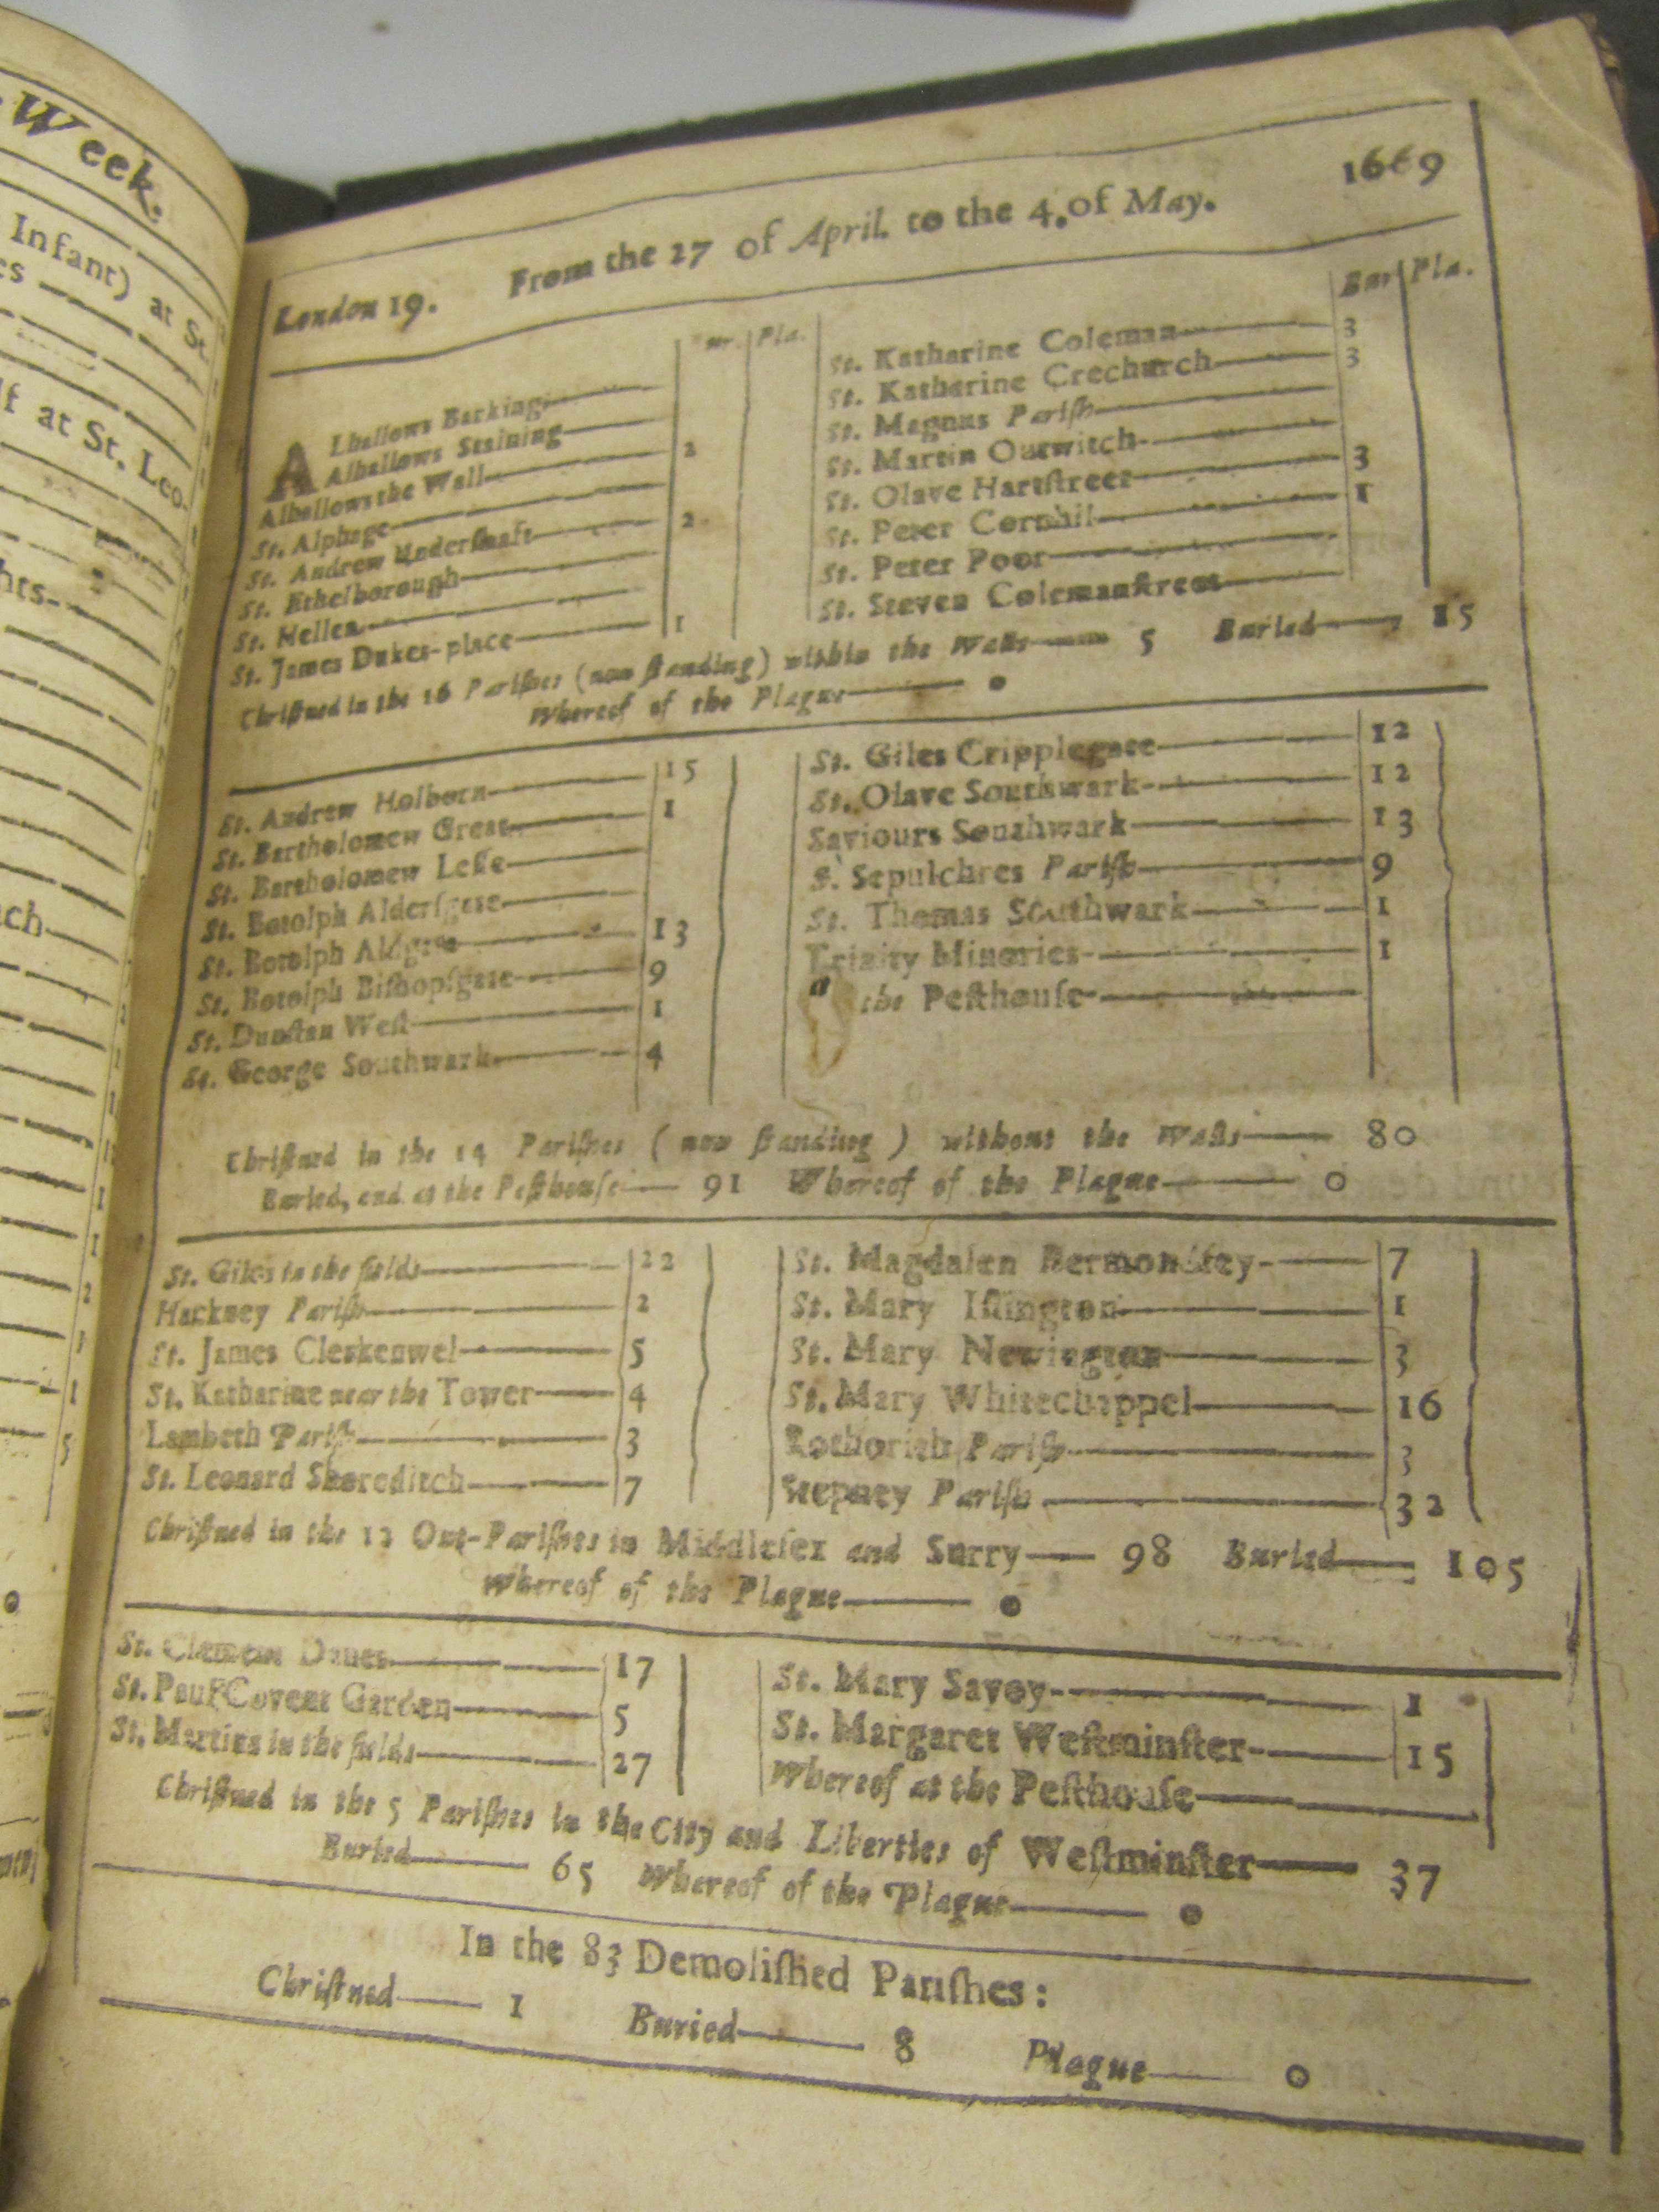 Week.
Infant) at St.
es
lf at St. Leo-
hts-
ach
1
1
2
1
1
5
0
London 19. From the 27 of April. to the 4. of May. 1669
Bur. Pla.
ALhallows Barking
Alhallows Staining
Alhallows the Wall 2
St. Alphage
St. Andrew Underſhaft 2
St. Ethelborough
St. Hellen
St. James Dukes-place 1
Bur Pla.
St. Katharine Coleman 3
St. Katharine Crechurch 3
St. Magnus Pariſh
St. Martin Outwitch
St. Olave Hartſtreet 3
St. Peter Cornhil 1
St. Peter Poor
St. Steven Colemanſtreet
Chriſtned in the 16 Pariſhes (now ſtanding) within the Walls 5 Buried 15
Whereof of the Plague 0
St. Andrew Holborn 15
St. Bartholomew Great 1
St. Bartholomew Leſſe
St. Botolph Alderſgate
St. Botolph Aldgate 13
St. Botolph Biſhopſgate 9
St. Dunſtan Weſt 1
St. George Southwark 4
St. Giles Cripplegate 12
St. Olave Southwark 12
Saviours Southwark 13
S. Sepulchres Pariſh 9
St. Thomas Southwark 1
Trinity Minories 1
a the Peſthouſe
Chriſtned in the 14 Pariſhes (now ſtanding) without the Walls 80
Buried, and at the Peſthouſe 91 Whereof of the Plague 0
St. Giles in the fields 22
Hackney Pariſh 2
St. James Clerkenwel 5
St. Katharine near the Tower 4
Lambeth Pariſh 3
St. Leonard Shoreditch 7
St. Magdalen Bermondſey 7
St. Mary Iſlington 1
St. Mary Newington 3
St. Mary Whitechappel 16
Rothorith Pariſh 3
Stepney Pariſh 32
Chriſtned in the 12 Out-Pariſhes in Middleſex and Surry 98 Buried 105
Whereof of the Plague 0
St. Clement Danes 17
St. Paul Covent Garden 5
St. Martins in the fields 27
St. Mary Savoy 1
St. Margaret Weſtminſter 15
Whereof at the Peſthouſe
Chriſtned in the 5 Pariſhes in the City and Liberties of Weſtminſter 37
Buried 65 Whereof of the Plague 0
In the 83 Demoliſhed Pariſhes:
Chriſtned 1 Buried 8 Plague 0